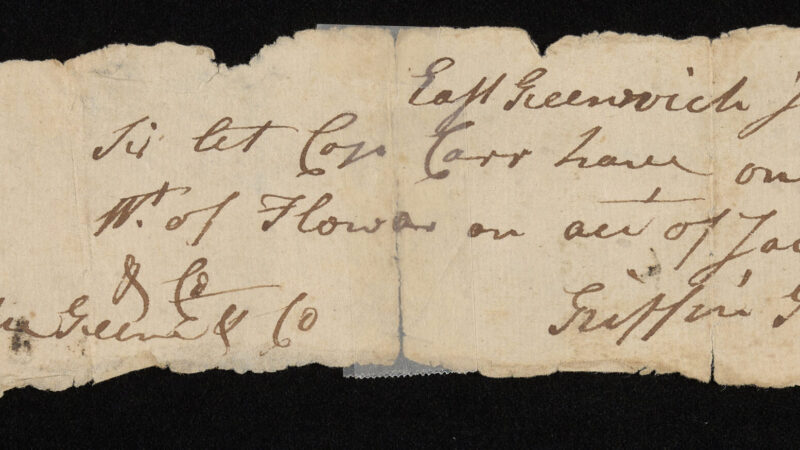 East Greenwich J
Sir let Cap Carr have on
Wt. of Flower on acct of Jac
& Co
Greene & Co
Griffin G